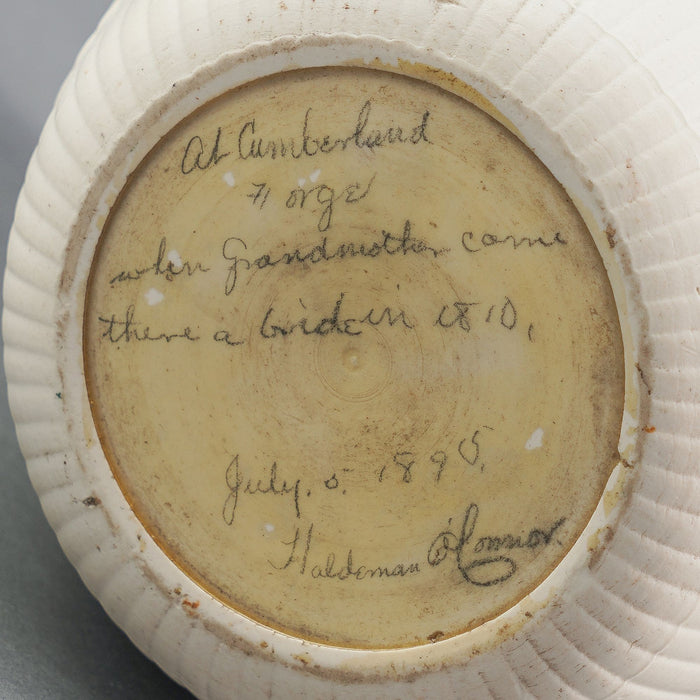 At Cumberland
Forge
when Grandmother came
there a bride in 1810,
July. 5. 1895.
Haldeman O'Connor.